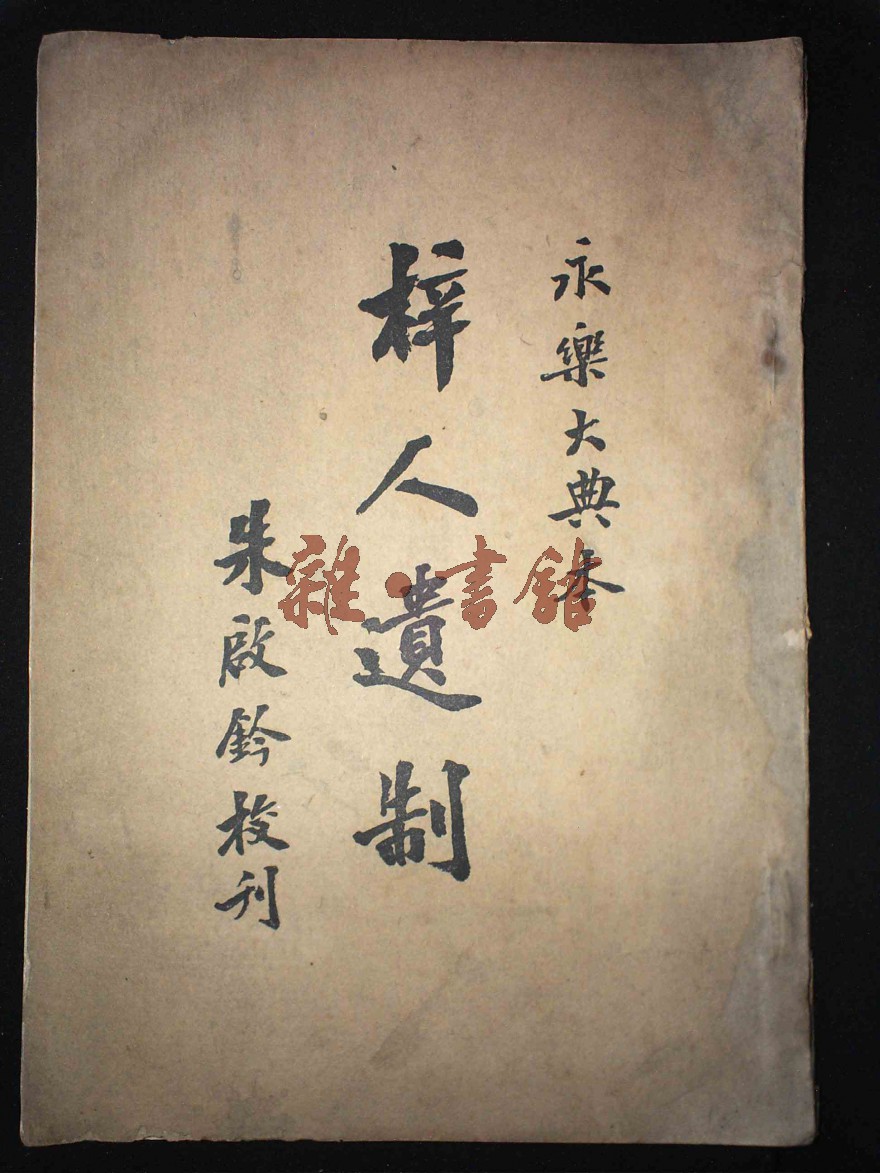 永樂大典本
梓人遺制
朱啟鈐校刊
雜·書館